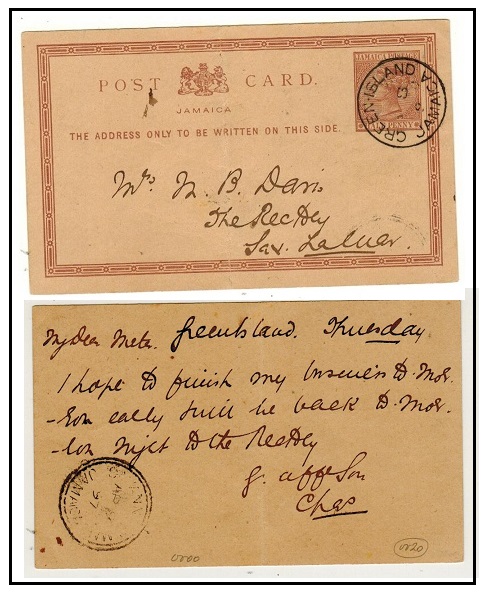 POST CARD.
JAMAICA
THE ADDRESS ONLY TO BE WRITTEN ON THIS SIDE.
JAMAICA POSTAGE
PENNY
GREEN-ISLAND JAMAICA
Mrs N. B. Davis
The Rectory
Sav. Lalmar.
My Dear Mater. Green Island. Thursday
I hope to finish my business to-mor-
-row early & will be back to-mor-
-row night to the Rectory
Yr. affe Son
Chas
JAMAICA
97